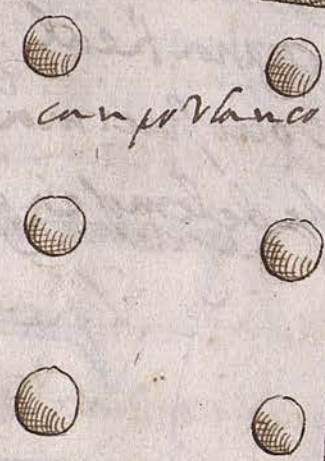 campo blanco